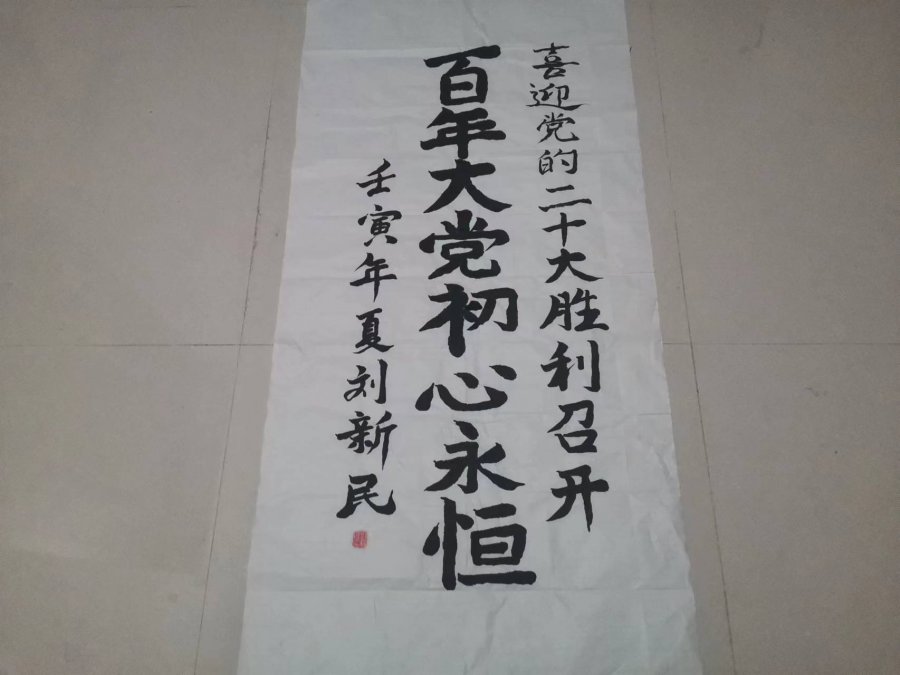 喜迎党的二十大胜利召开
百年大党初心永恒
壬寅年夏刘新民